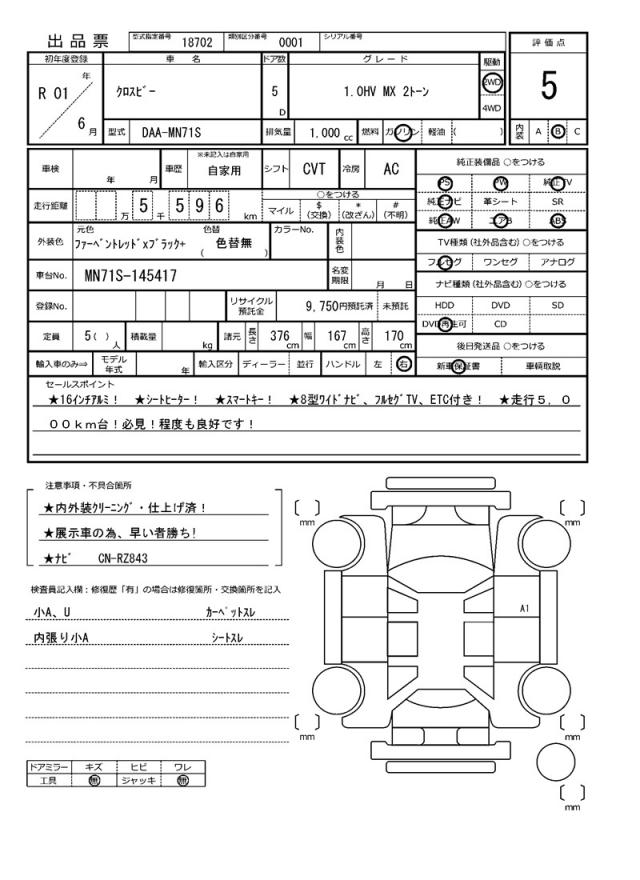 出品票 型式指定番号 18702 類別区分番号 0001 シリアル番号
評価点
5
初年度登録 車名 ドア数 グレード 駆動
R 01 年 6 月 クロスビー 5 D 1.0HV MX 2トーン 2WD 4WD
型式 DAA-MN71S 排気量 1.000 cc 燃料 ガソリン 軽油 ( ) 内装 A B C
車検 年 月 車歴 ※未記入は自家用 自家用 シフト CVT 冷房 AC
走行距離 万 5 千 5 9 6 km ○をつける マイル $ (交換) * (改ざん) # (不明)
外装色 元色 ファーベントレッドxブラック+ 色替 ( 色替無 ) カラーNo. 内装色
車台No. MN71S-145417 名変期限 月 日
登録No. リサイクル預託金 9,750円預託済 未預託
定員 5( ) 人 積載量 kg 諸元 長さ 376 cm 幅 167 cm 高さ 170 cm
輸入車のみ⇒ モデル年式 年 輸入区分 ディーラー 並行 ハンドル 左 右
純正装備品 ○をつける
PS PW 純正TV
純正ナビ 革シート SR
純正AW エアB ABS
TV種類 (社外品含む) ○をつける
フルセグ ワンセグ アナログ
ナビ種類 (社外品含む) ○をつける
HDD DVD SD
DVD再生可 CD
後日発送品 ○をつける
新車保証書 車輌取説
セールスポイント
★16インチアルミ! ★シートヒーター! ★スマートキー! ★8型ワイドナビ、フルセグTV、ETC付き! ★走行5,0
00km台!必見!程度も良好です!
注意事項・不具合箇所
★内外装クリーニング・仕上げ済!
★展示車の為、早い者勝ち!
★ナビ CN-RZ843
検査員記入欄：修復歴「有」の場合は修復箇所・交換箇所を記入
小A、U カーペットスレ
内張り小A シートスレ
ドアミラー キズ ヒビ ワレ
工具 無 ジャッキ 無
[ ] mm
[ ] mm
A1
[ ] mm
[ ] mm
[ ] mm